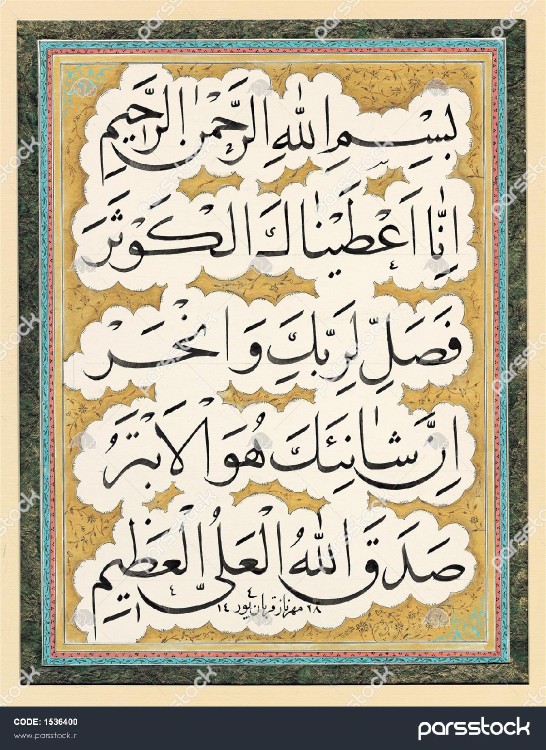 بِسْمِ اللّٰهِ الرَّحْمٰنِ الرَّحِيمِ
اِنَّا اَعْطَيْنَاكَ الْكَوْثَرَ
فَصَلِّ لِرَبِّكَ وَانْحَرْ
اِنَّ شَانِئَكَ هُوَ الْاَبْتَرُ
صَدَقَ اللّٰهُ الْعَلِيُّ الْعَظِيمِ
مهرناز قربان‌پور
CODE: 1536400
www.parsstock.ir
parsstock